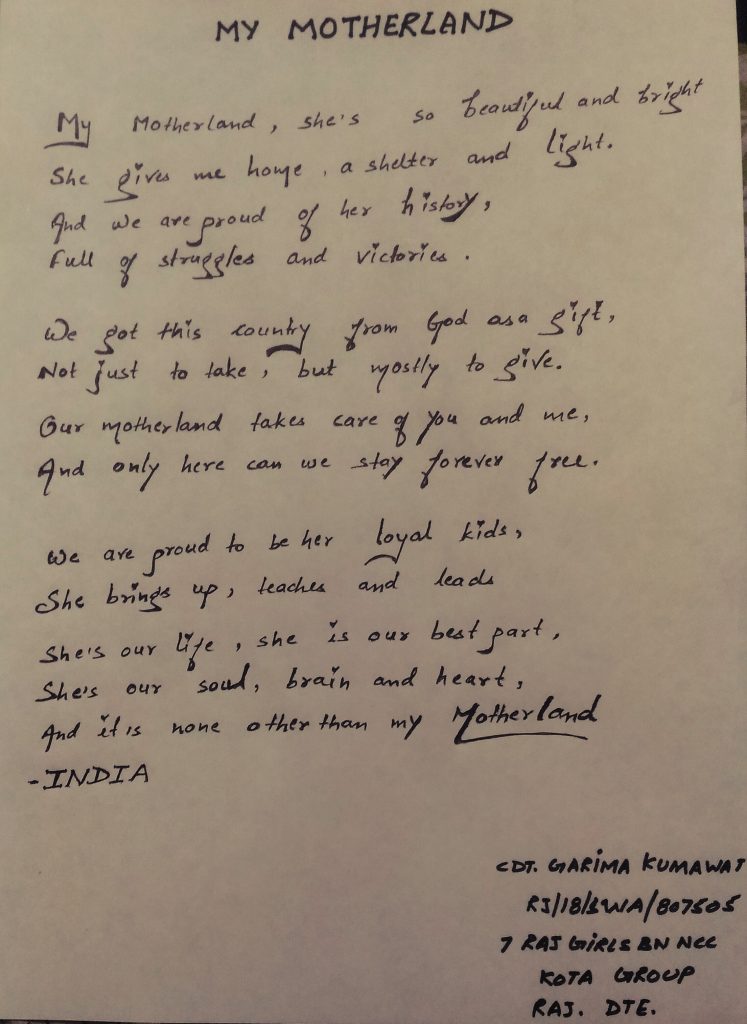 MY MOTHERLAND
My Motherland, she's so beautiful and bright
She gives me home, a shelter and light.
And we are proud of her history,
Full of struggles and victories.
We got this country from God as a gift,
Not just to take, but mostly to give.
Our motherland takes care of you and me,
And only here can we stay forever free.
We are proud to be her loyal kids,
She brings up, teaches and leads
She's our life, she is our best part,
She's our soul, brain and heart,
And it is none other than my Motherland
-INDIA
CDT. GARIMA KUMAWAT
RJ/18/SWA/807505
7 RAJ GIRLS BN NCC
KOTA GROUP
RAJ. DTE.